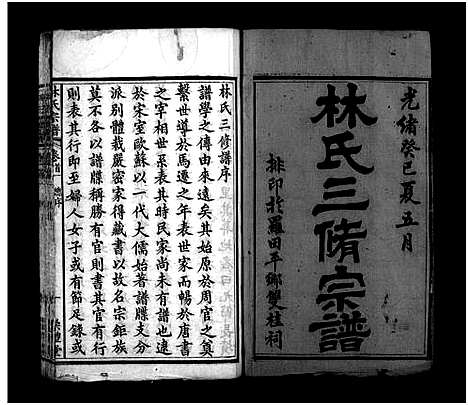 光緒癸巳夏五月
林氏三脩宗譜
排印於羅田平鄉雙桂祠
林氏三修譜序
譜學之傳由來遠矣其始原於周官之奠
繫世導於馬遷之年表世家而暢於唐書
之宰相世系表其時民家尚未有譜也迨
於宋室歐蘇以一代大儒始著譜牒支分
派別體裁嚴密家得藏書以故名宗鉅族
莫不各以譜牒稱勝有官則書其官有行
則表其行即至婦人女子或有節足錄或
林氏宗譜